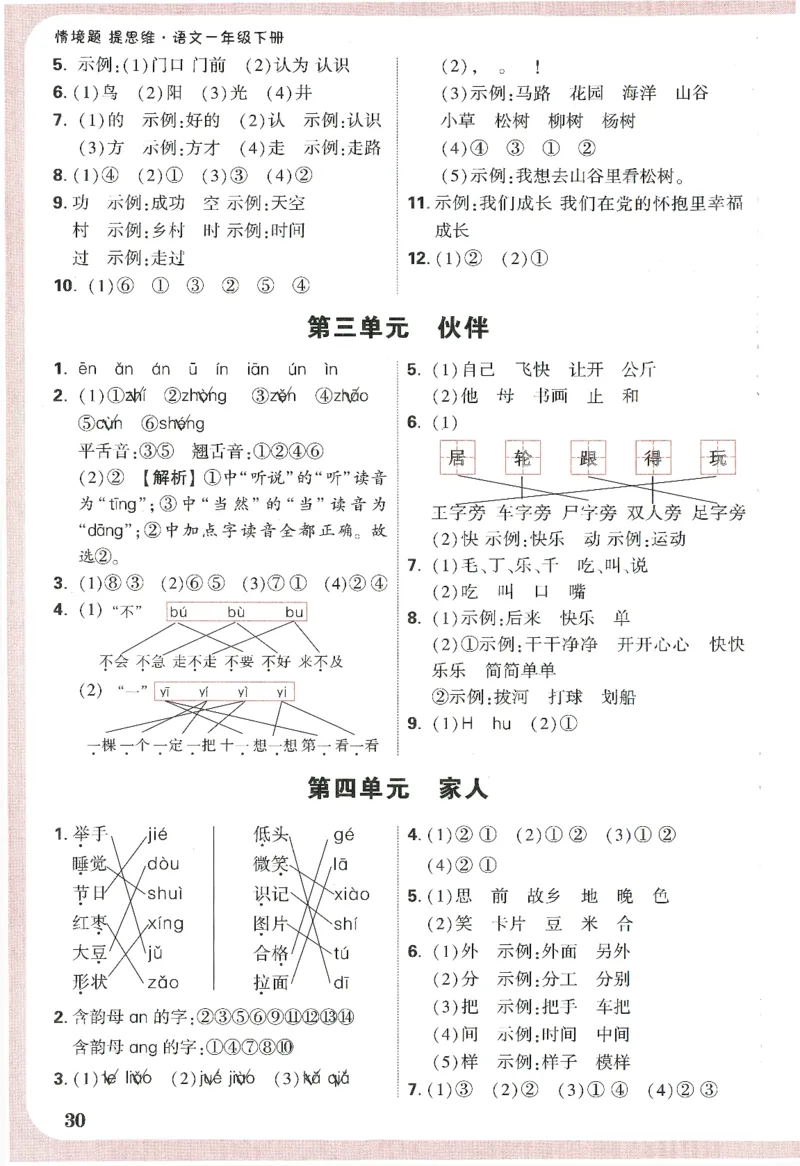 情境题 提思维·语文一年级下册
5. 示例:(1)门口 门前 (2)认为 认识
6. (1)鸟 (2)阳 (3)光 (4)井
7. (1)的 示例:好的 (2)认 示例:认识
(3)方 示例:方才 (4)走 示例:走路
8. (1)④ (2)① (3)③ (4)②
9. 功 示例:成功 空 示例:天空
村 示例:乡村 时 示例:时间
过 示例:走过
10. (1)⑥ ① ③ ② ⑤ ④
(2), 。 !
(3)示例:马路 花园 海洋 山谷
小草 松树 柳树 杨树
(4)④ ③ ① ②
(5)示例:我想去山谷里看松树。
11. 示例:我们成长 我们在党的怀抱里幸福
成长
12. (1)② (2)①
第三单元 伙伴
1. ēn ǎn án ū ín iān ún ìn
2. (1)① ② ③ ④
⑤ ⑥
平舌音:③⑤ 翘舌音:①②④⑥
(2)② 【解析】①中“听说”的“听”读音
为“tīng”;③中“当然”的“当”读音为
“dāng”;②中加点字读音全都正确。故
选②。
3. (1)⑧③ (2)⑥⑤ (3)⑦① (4)②④
4. (1) “不” bú bù bu
不会 不急 走不走 不要 不好 来不及
(2) “一” yī yí yì yi
一棵 一个 一定 一把 十一 想一想 第一 看一看
5. (1)自己 飞快 让开 公斤
(2)他 母 书画 止 和
6. (1)
居 轮 跟 得 玩
王字旁 车字旁 尸字旁 双人旁 足字旁
(2)快 示例:快乐 动 示例:运动
7. (1)毛、丁、乐、千 吃、叫、说
(2)吃 叫 口 嘴
8. (1)示例:后来 快乐 单
(2)①示例:干干净净 开开心心 快快
乐乐 简简单单
②示例:拔河 打球 划船
9. (1)H hu (2)①
第四单元 家人
1. 举手 jié 低头 gé
睡觉 dòu 微笑 lā
节日 shuì 识记 xiào
红枣 xíng 图片 shí
大豆 jǔ 合格 tú
形状 zǎo 拉面 dī
2. 含韵母 an 的字:②③⑤⑥⑨⑪⑫⑬⑭
含韵母 ang 的字:①④⑦⑧⑩
3. (1) (2) (3)
4. (1)②① (2)①② (3)①②
(4)②①
5. (1)思 前 故乡 地 晚 色
(2)笑 卡片 豆 米 合
6. (1)外 示例:外面 另外
(2)分 示例:分工 分别
(3)把 示例:把手 车把
(4)间 示例:时间 中间
(5)样 示例:样子 模样
7. (1)③ (2)② (3)①④ (4)②③
30